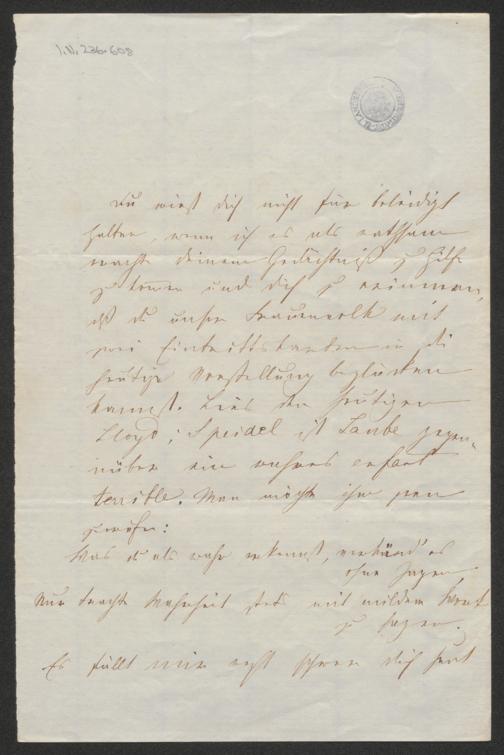 I.N. 236.608
Du wirst dich nicht für beleidigt
halten, wenn ich es als rathsam
erachte deinem Gedächtniß zu Hilfe
zu kommen und dich zu erinnern,
daß du unser Frauenvolk mit
zwei Eintrittskarten in die
heutige Vorstellung beglücken
kannst. Lies den heutigen
Lloyd; Speidel ist Laube gegen-
über ein wahres enfant
terrible. Man möchte ihm gern
zurufen:
Was du als wahr erkennst, verkünd' es
ohne Zagen
Nur trachte Wahrheit stets mit mildem Wort
zu sagen.
Es fällt mir recht schwer dich heut